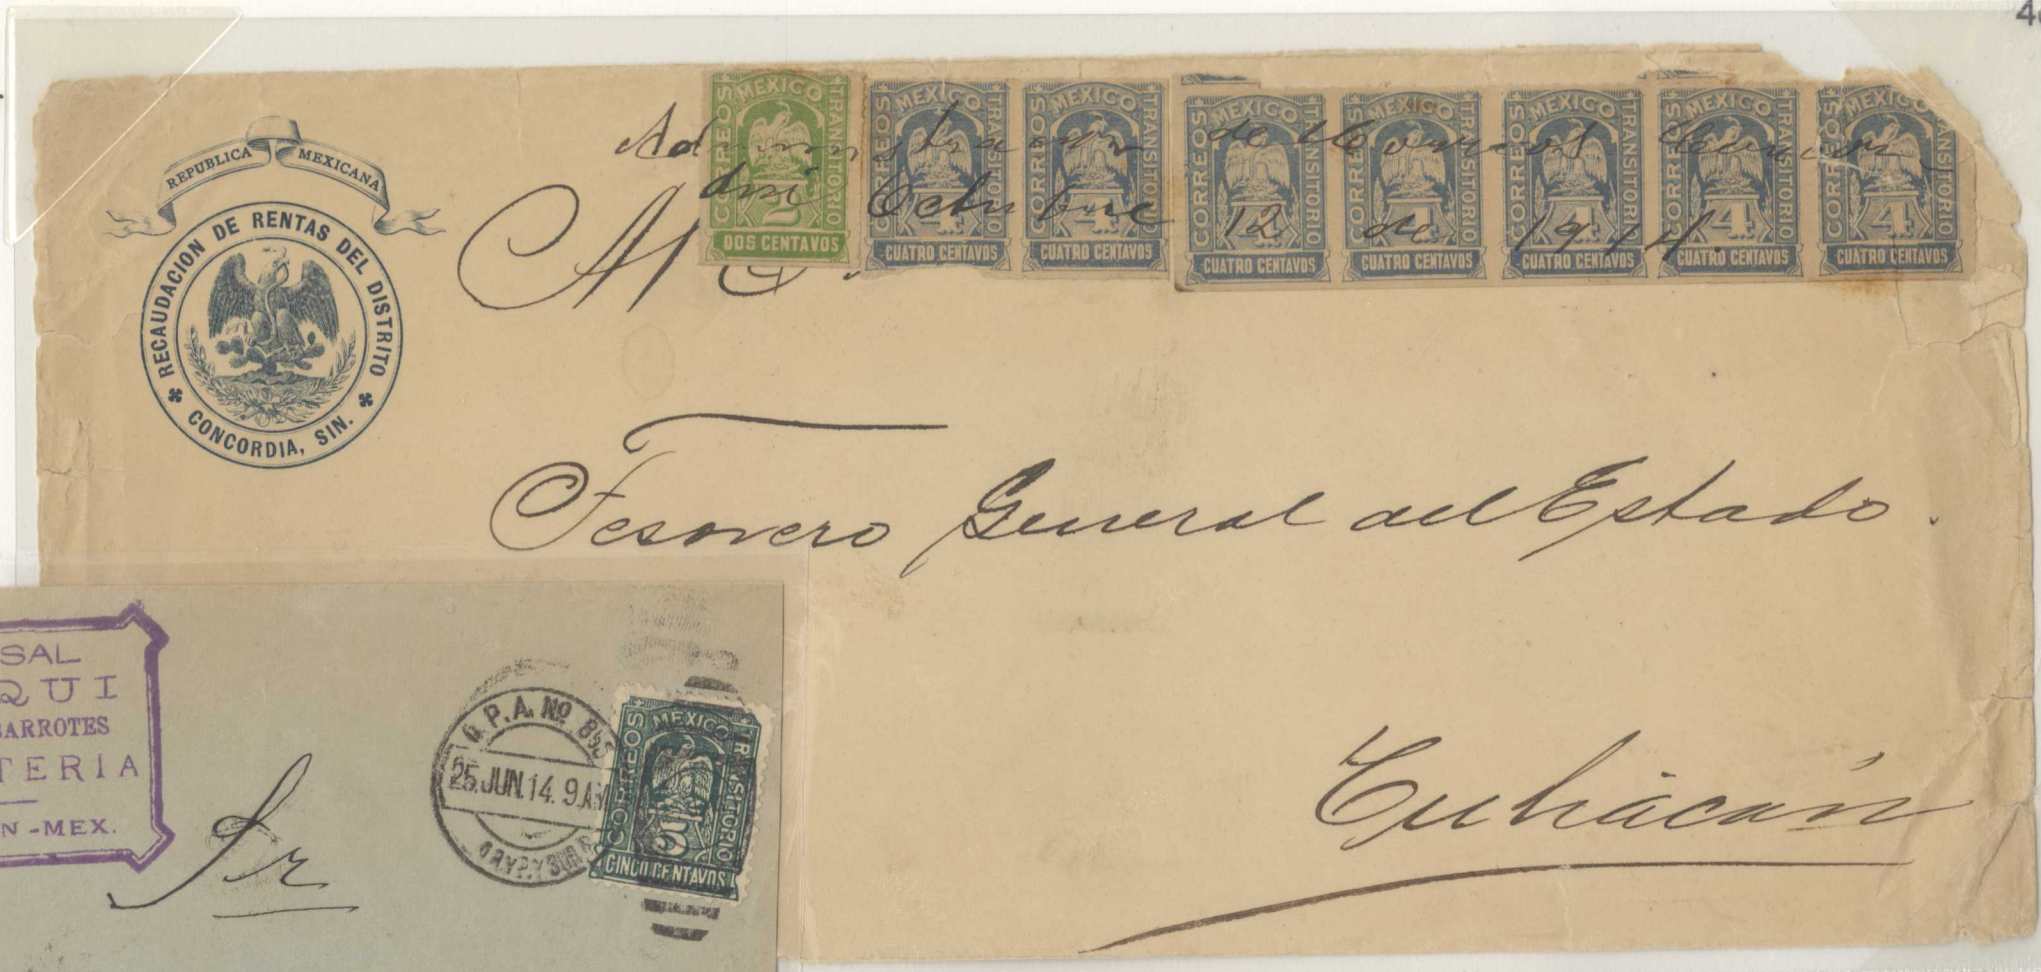 REPUBLICA MEXICANA
RECAUDACION DE RENTAS DEL DISTRITO
CONCORDIA, SIN.
CORREOS MEXICO TRANSITORIO
2
DOS CENTAVOS
CORREOS MEXICO TRANSITORIO
4
CUATRO CENTAVOS
CORREOS MEXICO TRANSITORIO
4
CUATRO CENTAVOS
CORREOS MEXICO TRANSITORIO
4
CUATRO CENTAVOS
CORREOS MEXICO TRANSITORIO
4
CUATRO CENTAVOS
CORREOS MEXICO TRANSITORIO
4
CUATRO CENTAVOS
CORREOS MEXICO TRANSITORIO
4
CUATRO CENTAVOS
CORREOS MEXICO TRANSITORIO
4
CUATRO CENTAVOS
de
Octubre 12 de 1914.
Al C.
Tesorero General del Estado.
Culiacán
SAL
QUI
BARROTES
TERIA
N-MEX.
Sr
O.P.A. No 855
25 JUN. 14. 9 AM
CORREOS MEXICO TRANSITORIO
5
CINCO CENTAVOS